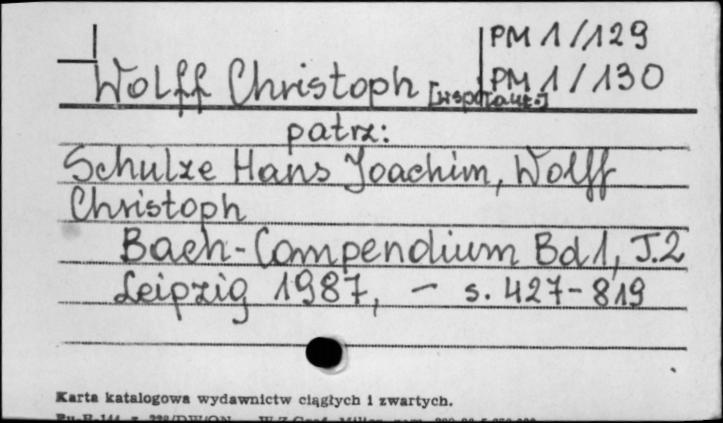 PM 1/129
Wolff Christoph [współaut.] PM 1/130
patrz:
Schulze Hans Joachim, Wolff
Christoph
Bach-Compendium Bd 1, T.2
Leipzig 1987, - s. 427-819
Karta katalogowa wydawnictw ciągłych i zwartych.